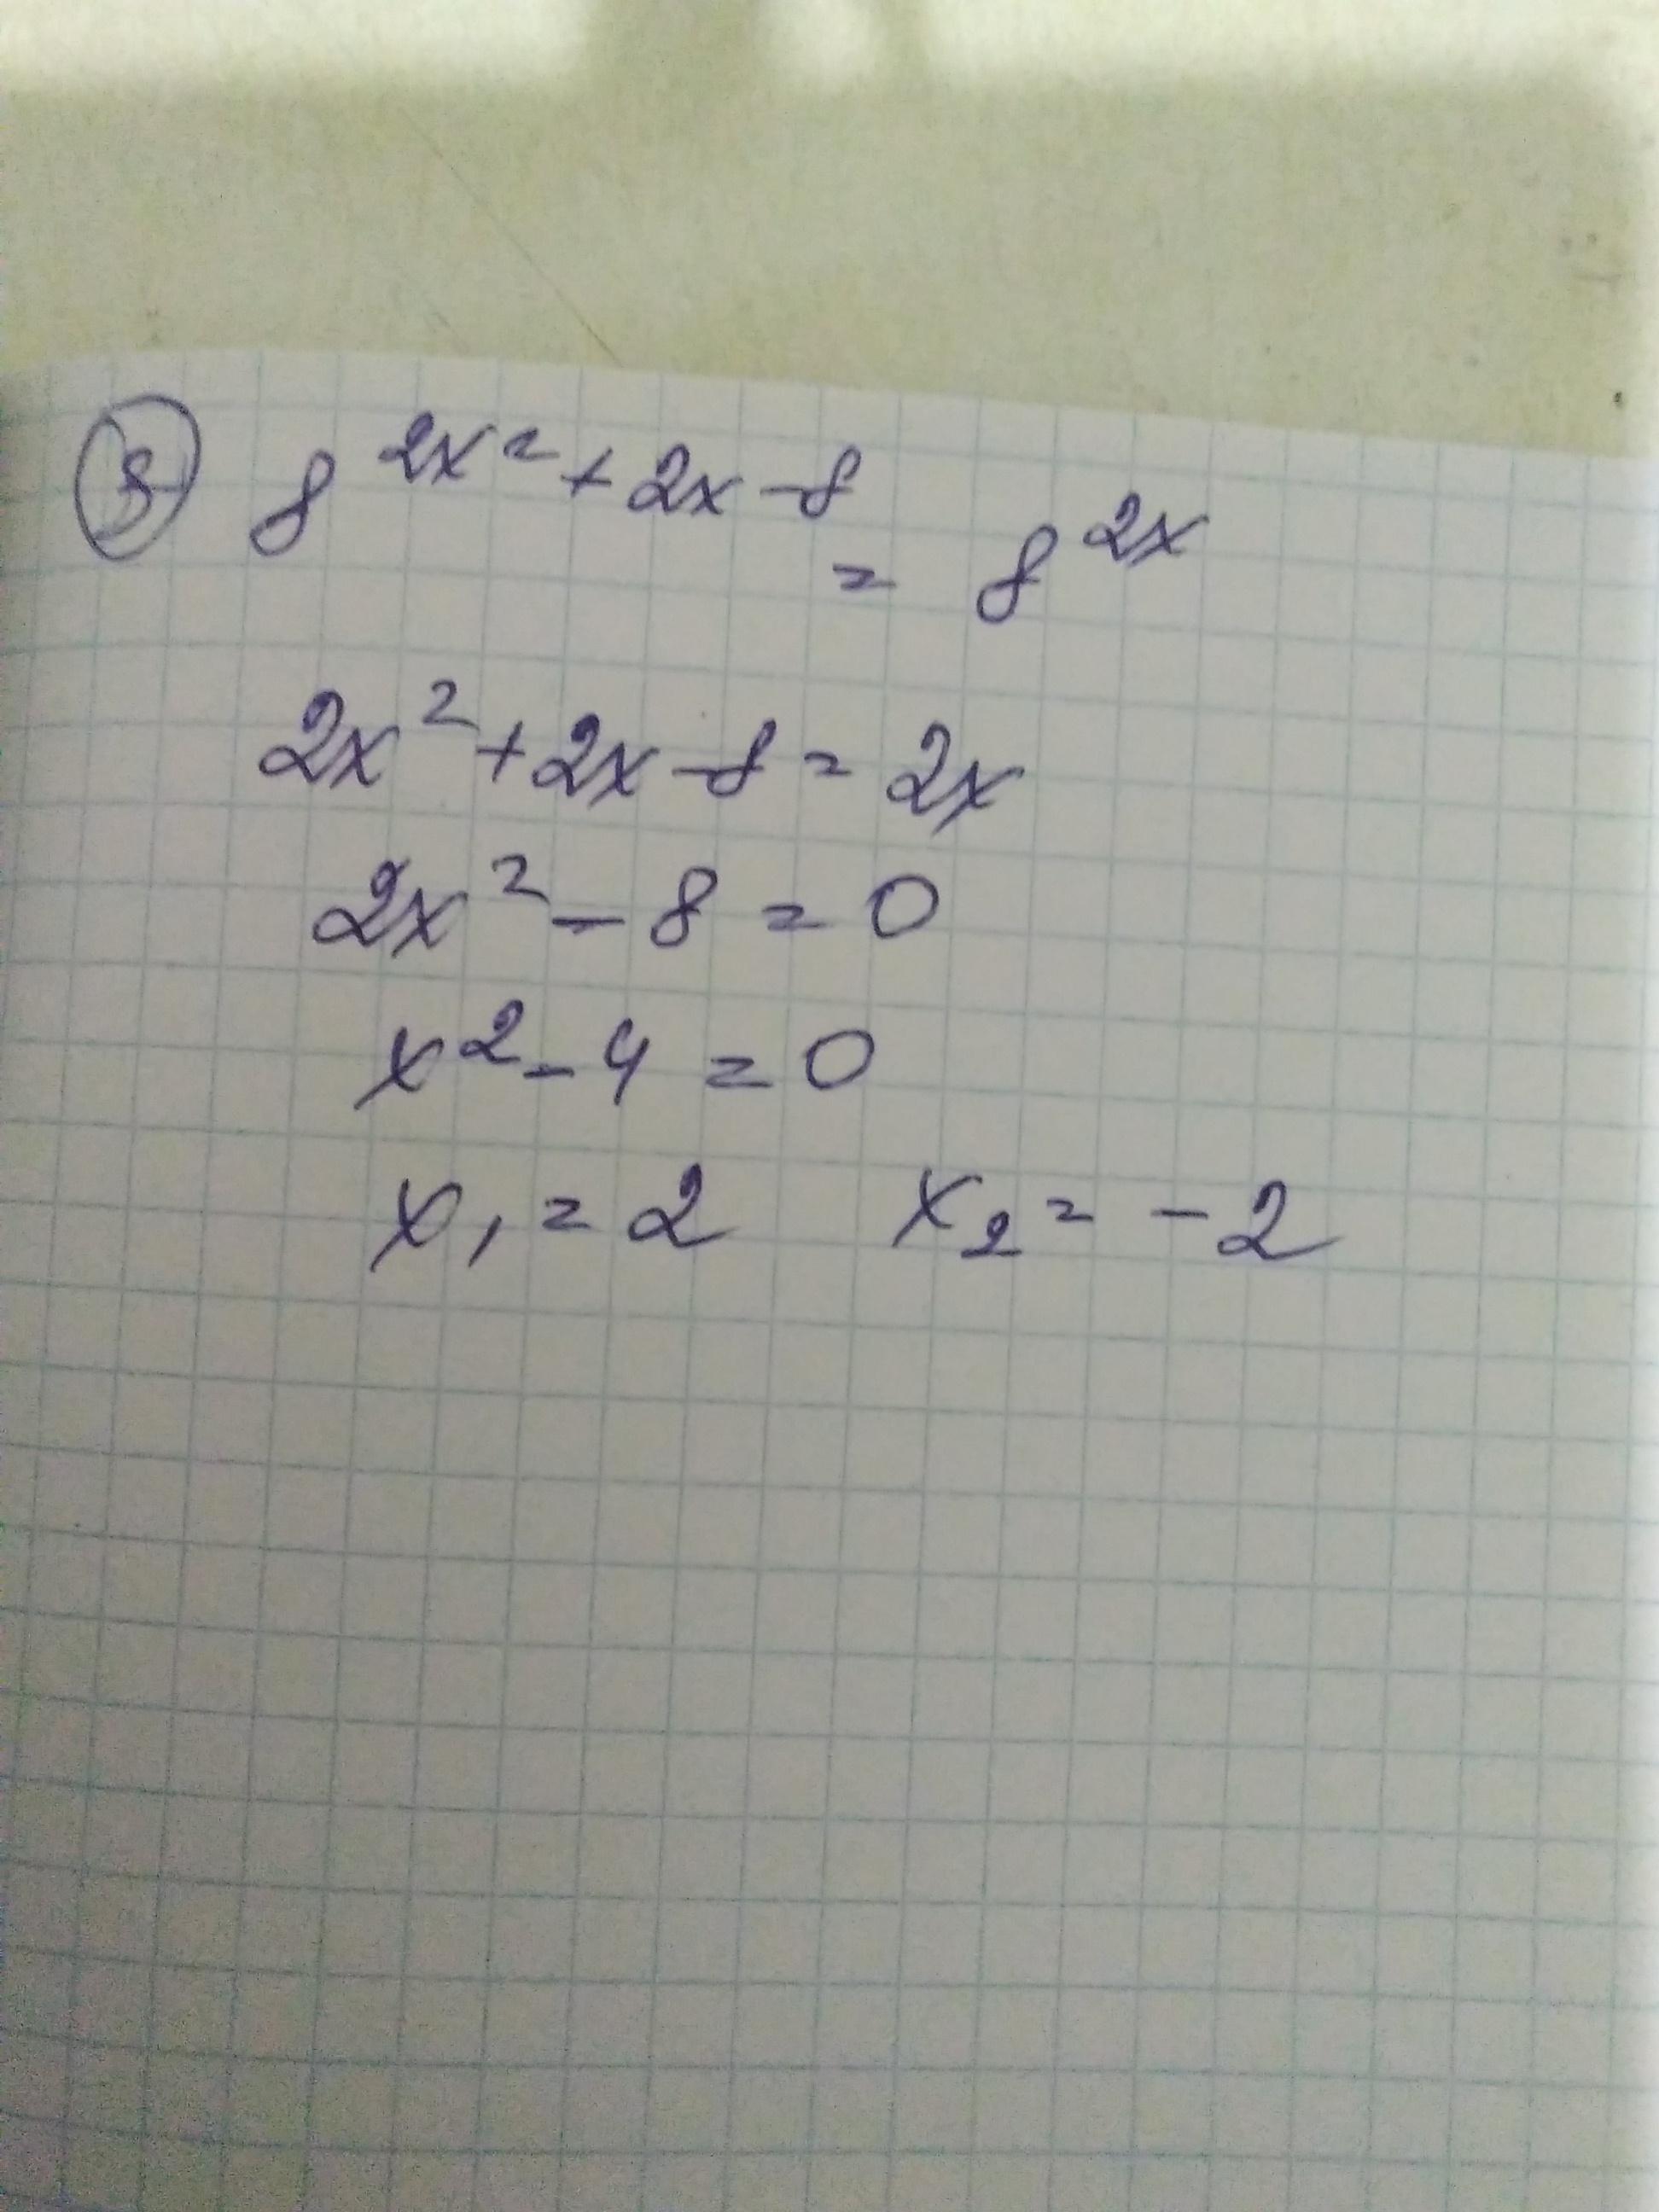 8^{2x^2+2x-8} = 8^{2x}
2x² + 2x - 8 = 2x
2x² - 8 = 0
x² - 4 = 0
x₁ = 2 x₂ = -2